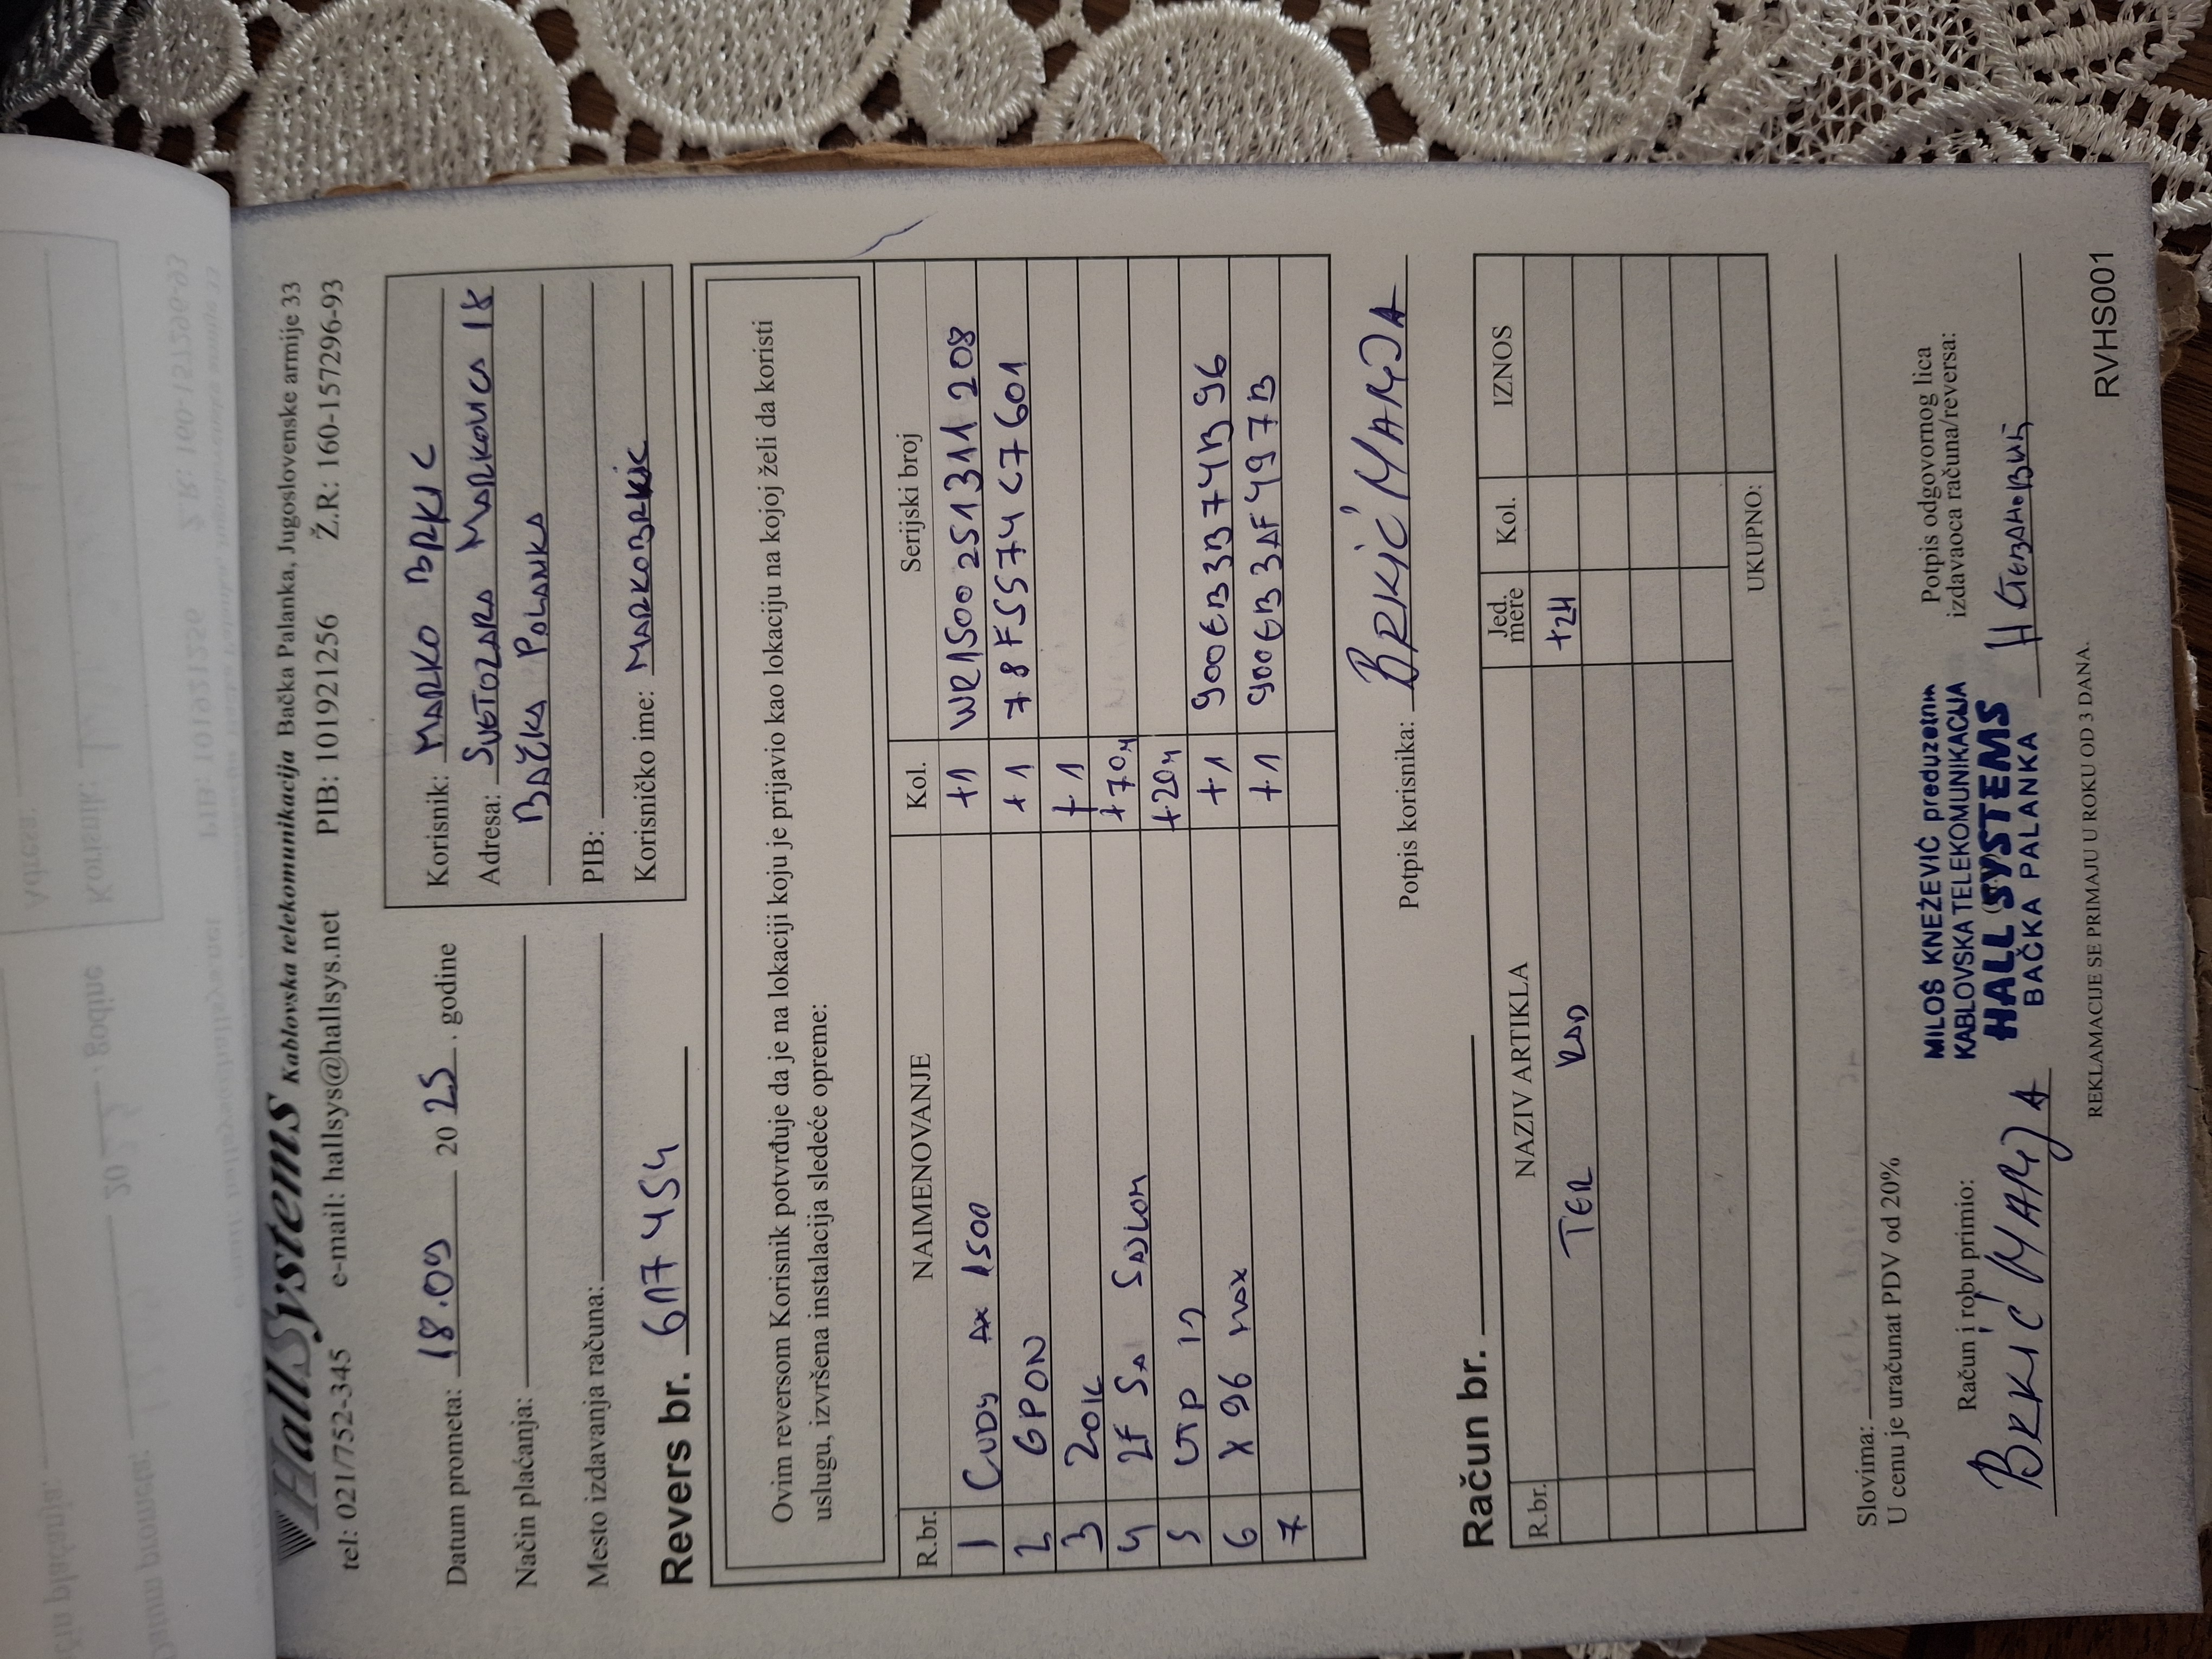 HallSystems Kablovska telekomunikacija Bačka Palanka, Jugoslovenske armije 33
tel: 021/752-345 e-mail: hallsys@hallsys.net PIB: 101921256 Ž.R: 160-157296-93
Datum prometa: 18.09 2025. godine
Način plaćanja:
Mesto izdavanja računa:
Korisnik: MARKO BRKIC
Adresa: SVETOZARA MARKOVICA 18
BAČKA PALANKA
PIB:
Korisničko ime: MARKOBRKIC
Revers br. 617454
Ovim reversom Korisnik potvrđuje da je na lokaciji koju je prijavio kao lokaciju na kojoj želi da koristi
uslugu, izvršena instalacija sledeće opreme:
R.br. NAIMENOVANJE Kol. Serijski broj
1 CUDY AX 1500 +1 WR1500251311208
2 GPON +1 78F5574C7601
3 ZOIL +1
4 2F SA SAJLOM +70m
5 UTP +20m
6 X96 MAX +1 900EB3B74B96
7 +1 900EB3AF497B
Potpis korisnika: BRKIĆ MARIJA
Račun br.
R.br. NAZIV ARTIKLA Jed. mere Kol. IZNOS
TER RAD +2H
UKUPNO:
Slovima:
U cenu je uračunat PDV od 20%
Račun i robu primio:
BRKIĆ MARIJA
MILOŠ KNEŽEVIĆ preduzetnik
KABLOVSKA TELEKOMUNIKACIJA
HALL SYSTEMS
BAČKA PALANKA
Potpis odgovornog lica
izdavaoca računa/reversa:
REKLAMACIJE SE PRIMAJU U ROKU OD 3 DANA.
RVHS001